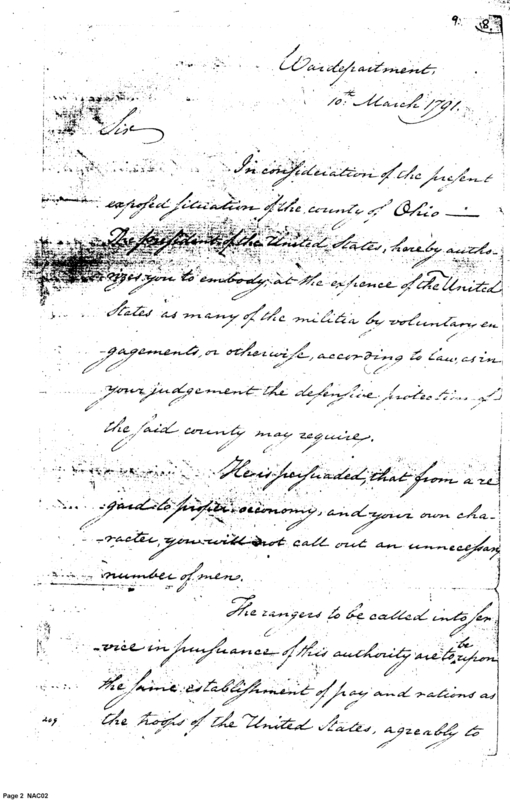 9. 8.
War department,
10th March 1791.
Sir
In consideration of the present
exposed situation of the county of Ohio —
The President of the United States, hereby autho-
rizes you to embody, at the expence of the United
States as many of the militia by voluntary en
gagements, or otherwise, according to law, as in
your judgement the defensive protection of
the said county may require.
He is persuaded, that from a re
gard to proper œconomy, and your own cha-
racter, you will not call out an unnecessary
number of men.
The rangers to be called into ser-
-vice in pursuance of this authority are to be upon
the same establishment of pay and rations as
409 the troops of the United States, agreeably to
Page 2 NAC02